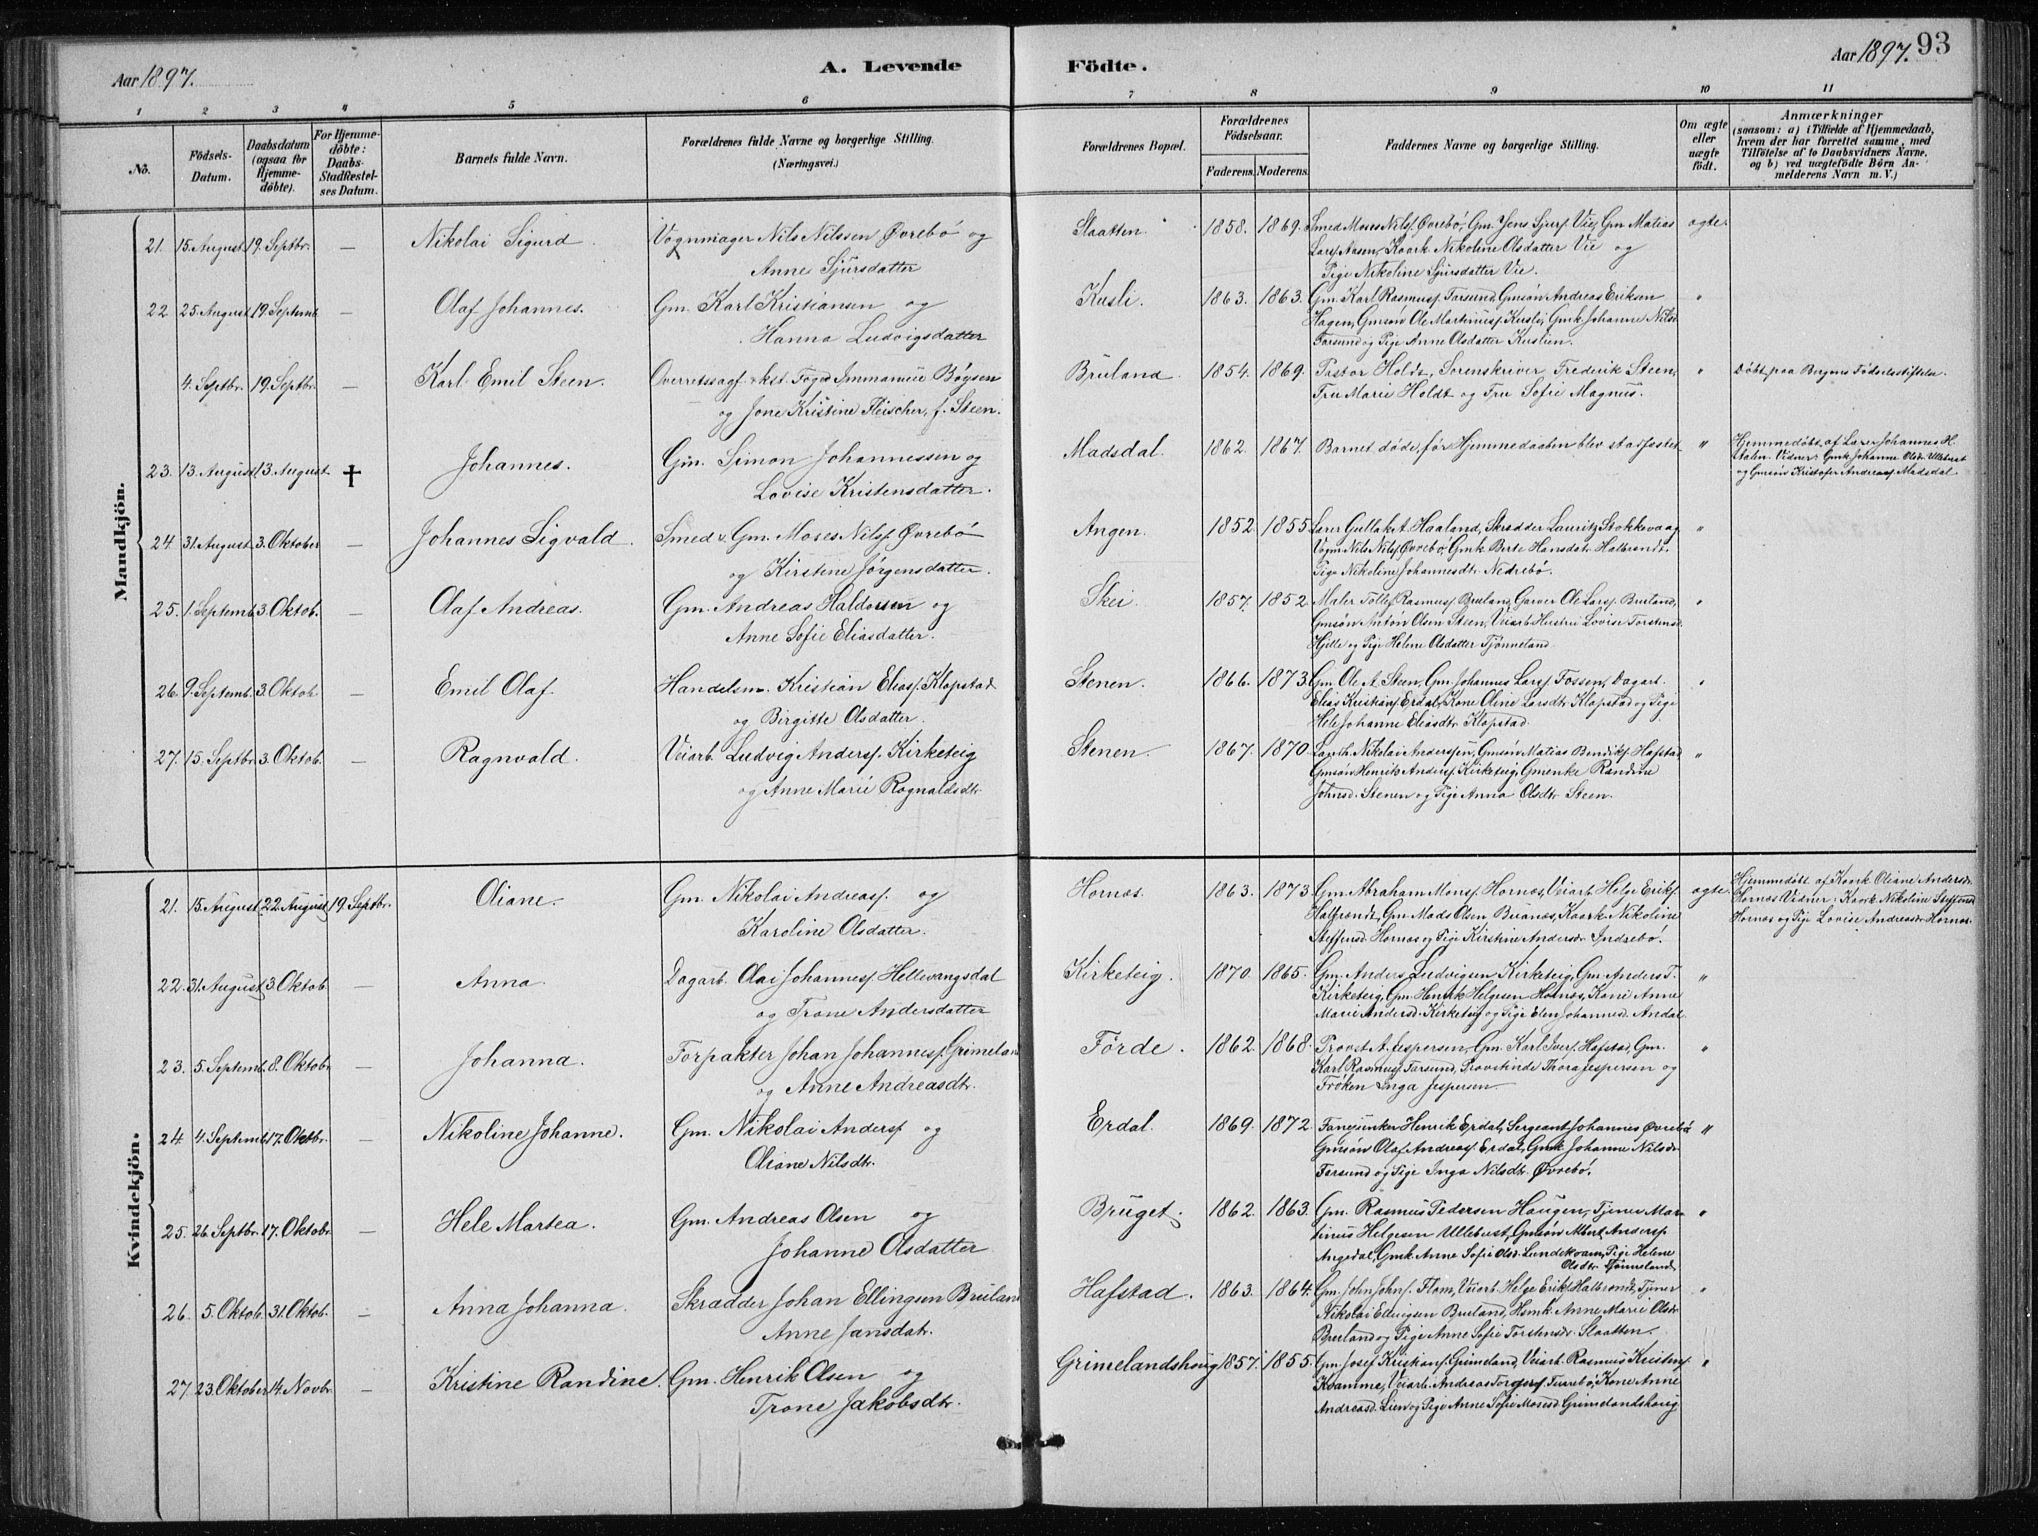 Aar 1897.
A. Levende Födte.
Aar 1897. 93
1 2 3 4 5 6 7 8 9 10 11
No.
Födsels-Datum.
Daabsdatum (ogsaa for Hjemmedöbte).
For Hjemmedöbte: Daabs-Stadfæstelses Datum.
Barnets fulde Navn.
Forældrenes fulde Navne og borgerlige Stilling.
(Næringsvei.)
Forældrenes Bopæl.
Forældrenes Födselsaar.
Faderens. Moderens.
Faddernes Navne og borgerlige Stilling.
Om ægte eller uægte födt.
Anmærkninger
(saasom: a) i Tilfælde af Hjemmedaab, hvem der har forrettet samme, med Tilföielse af to Daabsvidners Navne, og b) ved uægtefödte Börn Anmelderens Navn m. V.)
Mandkjön.
21. 15. August 19. Septbr. — Nikolai Sigurd. Vognmager Nils Nilssen Øvrebö og
Anne Sjursdatter
Slaatten. 1858. 1869. Smed Moses Nilsf. Øvrebö, Gm. Jens Sjursf. Vie, Gm. Matias
Larsf. Aasen, Kaark. Nikoline Olsdatter Vie og
Pige Nikoline Sjursdatter Vie.
ægte.
22 25. August 19. Septemb. — Olaf Johannes. Gm. Karl Kristiansen og
Hanna Ludvigsdatter
Kusli. 1863. 1863. Gm. Karl Rasmusf. Farsund, Gmsøn Andreas Eriksen
Hagen, Gmsøn Ole Martinusf. Kusli, Gmk. Johanne Nilsd.
Farsund og Pige Anne Olsdatter Kuslien.
"
4. Septbr. 19. Septbr. — Karl Emil Steen. Overretssagf. kst. Foged Immanuel Bögsen
og Jone Kristine Fleischer, f. Steen.
Bruland. 1854. 1869. Pastor Holdt, Sorenskriver Frederik Steen,
Fru Marie Holdt og Fru Sofie Magnus.
" Döbt paa Bergens Födselsstiftelse.
23. 13. August. 13. August. † Johannes. Gm. Simon Johannessen og
Lovise Kristensdatter.
Madsdal. 1862. 1867. Barnet döde, för Hjemmedaaben blev stadfæstet
" Hjemmedöbt af Lærer Johannes H.
Vidner: Gmk. Johanne Olsdr. Ullebust
og Gmsøn Kristofer Andreasf. Madsdal
24 31. August 3. Oktober — Johannes Sigvald. Smed & Gm. Moses Nilsf. Øvrebö
og Kirstene Jörgensdatter.
Angen. 1852 1855 Lærer Gullak A. Haaland, Skrædder Lauritz Stokkevaag
Vogm. Nils Nilsf. Øvrebö, Gmk. Berte Hansdatr. Halbrendt.
Pige Nikoline Johannesdtr. Nedrebö.
"
25. 1. Septemb. 3. Oktob. — Olaf Andreas. Gm. Andreas Haldorsen og
Anne Sofie Eliasdatter.
Skei. 1857. 1852. Maler Tollef Rasmusf. Bruland, Garver Ole Larsf. Bruland,
Gmsøn Anton Olsen Steen, Veiarb. Hustru Lovise Torstensd.
Hjelle og Pige Helene Olsdatter Tjönneland.
"
26. 9. Septemb. 3. Oktob. — Emil Olaf. Handelsm. Kristian Eliasf. Klopstad
og Birgitte Olsdatter.
Stenen. 1866. 1873. Gm. Ole A. Steen, Gm. Johannes Larsf. Fossen, Dagarb.
Elias Kristiansf. Erdal, Kone Oline Larsdtr. Klopstad og Pige
Hele Johanne Eliasdtr. Klopstad.
"
27. 15. Septbr. 3. Oktob. — Ragnvald. Veiarb. Ludvig Andersf. Kirketeig
og Anne Marie Ragnaldsdtr.
Stenen. 1867. 1870. Nikolai Anderssen, Gmsøn Matias Bendiksf. Hafstad
Gmsøn Henrik Andersf. Kirketeig, Gmenke Randine
Johnsd. Stenen og Pige Anna Olsdtr. Steen.
"
Kvindekjön.
21. 15. August 22. August 19. Septbr. Oliane. Gm. Nikolai Andreasf. og
Karoline Olsdatter.
Hornes. 1863. 1873. Gm. Abraham Monsf. Hornes, Veiarb. Helge Eriksf.
Halbrendt, Gm. Mads Olsen Bruanes, Kaark. Nikoline
Steffensd. Hornes og Pige Kirstine Andersdr. Indrebö.
ægte. Hjemmedöbt af Kaark. Oliane Andersdr.
Hornes Vidner: Kaark. Nikoline Steffensd.
Hornes og Pige Lovise Andreasdr. Hornes.
22. 31. August 3. Oktob. — Anna. Dagarb. Olai Johannesf. Hellevangsdal
og Trone Andersdatter
Kirketeig. 1870. 1865. Gm. Anders Ludvigsen Kirketeig, Gm. Anders T.
Kirketeig, Gm. Henrik Helgesen Hornes, Kone Anne
Marie Andersd. Kirketeig og Pige Elen Johannesd. Andal
"
23. 5. Septemb. 8. Oktobr. — Johanna. Forpakter Johan Johannesf. Grimeland
og Anne Andreasdtr.
Förde. 1862. 1868. Provst A. Jespersen, Gm. Karl Iversf. Hafstad, Gm.
Karl Rasmusf. Farsund, Provstinde Thora Jespersen og
Fröken Inga Jespersen
"
24 4. Septemb. 17. Oktbr. — Nikoline Johanne. Gm. Nikolai Andersf. og
Oliane Nilsdtr.
Erdal. 1869. 1872. Fanejunker Henrik Erdal, Sergeant Johannes Øvrebö
Gmsøn Olaf Andreasf. Erdal, Gmk. Johanne Nilsdr.
Farsund og Pige Inga Nilsdtr. Øvrebö.
"
25. 26. Septbr. 17. Oktobr. — Hele Martea. Gm. Andreas Olsen og
Johanne Olsdatter
Bruget. 1862. 1863. Gm. Rasmus Pedersen Haugen, Tjener Mar-
tinus Helgesen Ullebust, Gmsøn Albert Andersf.
Angedal, Gmk. Anne Sofie Olsd. Lundekvam, Pige Helene
Olsdtr. Tjönneland.
"
26. 5. Oktob. 31. Oktob. — Anna Johanna. Skrædder Johan Ellingsen Bruland
Anne Jansdatr.
Hafstad. 1863. 1864. Gm. John Johnsf. Flom, Veiarb. Helge Eriksf. Halbrendt, Tjener
Nikolai Ellingsen Bruland, Hsmk. Anne Marie Olsdr.
Bruland og Pige Anne Sofie Torstensdr. Slaatten.
"
27. 23. Oktober 14. Novbr. — Kristine Randine. Gm. Henrik Olsen og
Trone Jakobsdtr.
Grimelandshaug 1857. 1855. Gm. Josef Kristiansf. Grimeland, Veiarb. Rasmus Kristensf.
Kvamme, Veiarb. Andreas Furebö, Kone Anne
Andreasd. Lien og Pige Anne Sofie Mosesd. Grimelandshaug
"